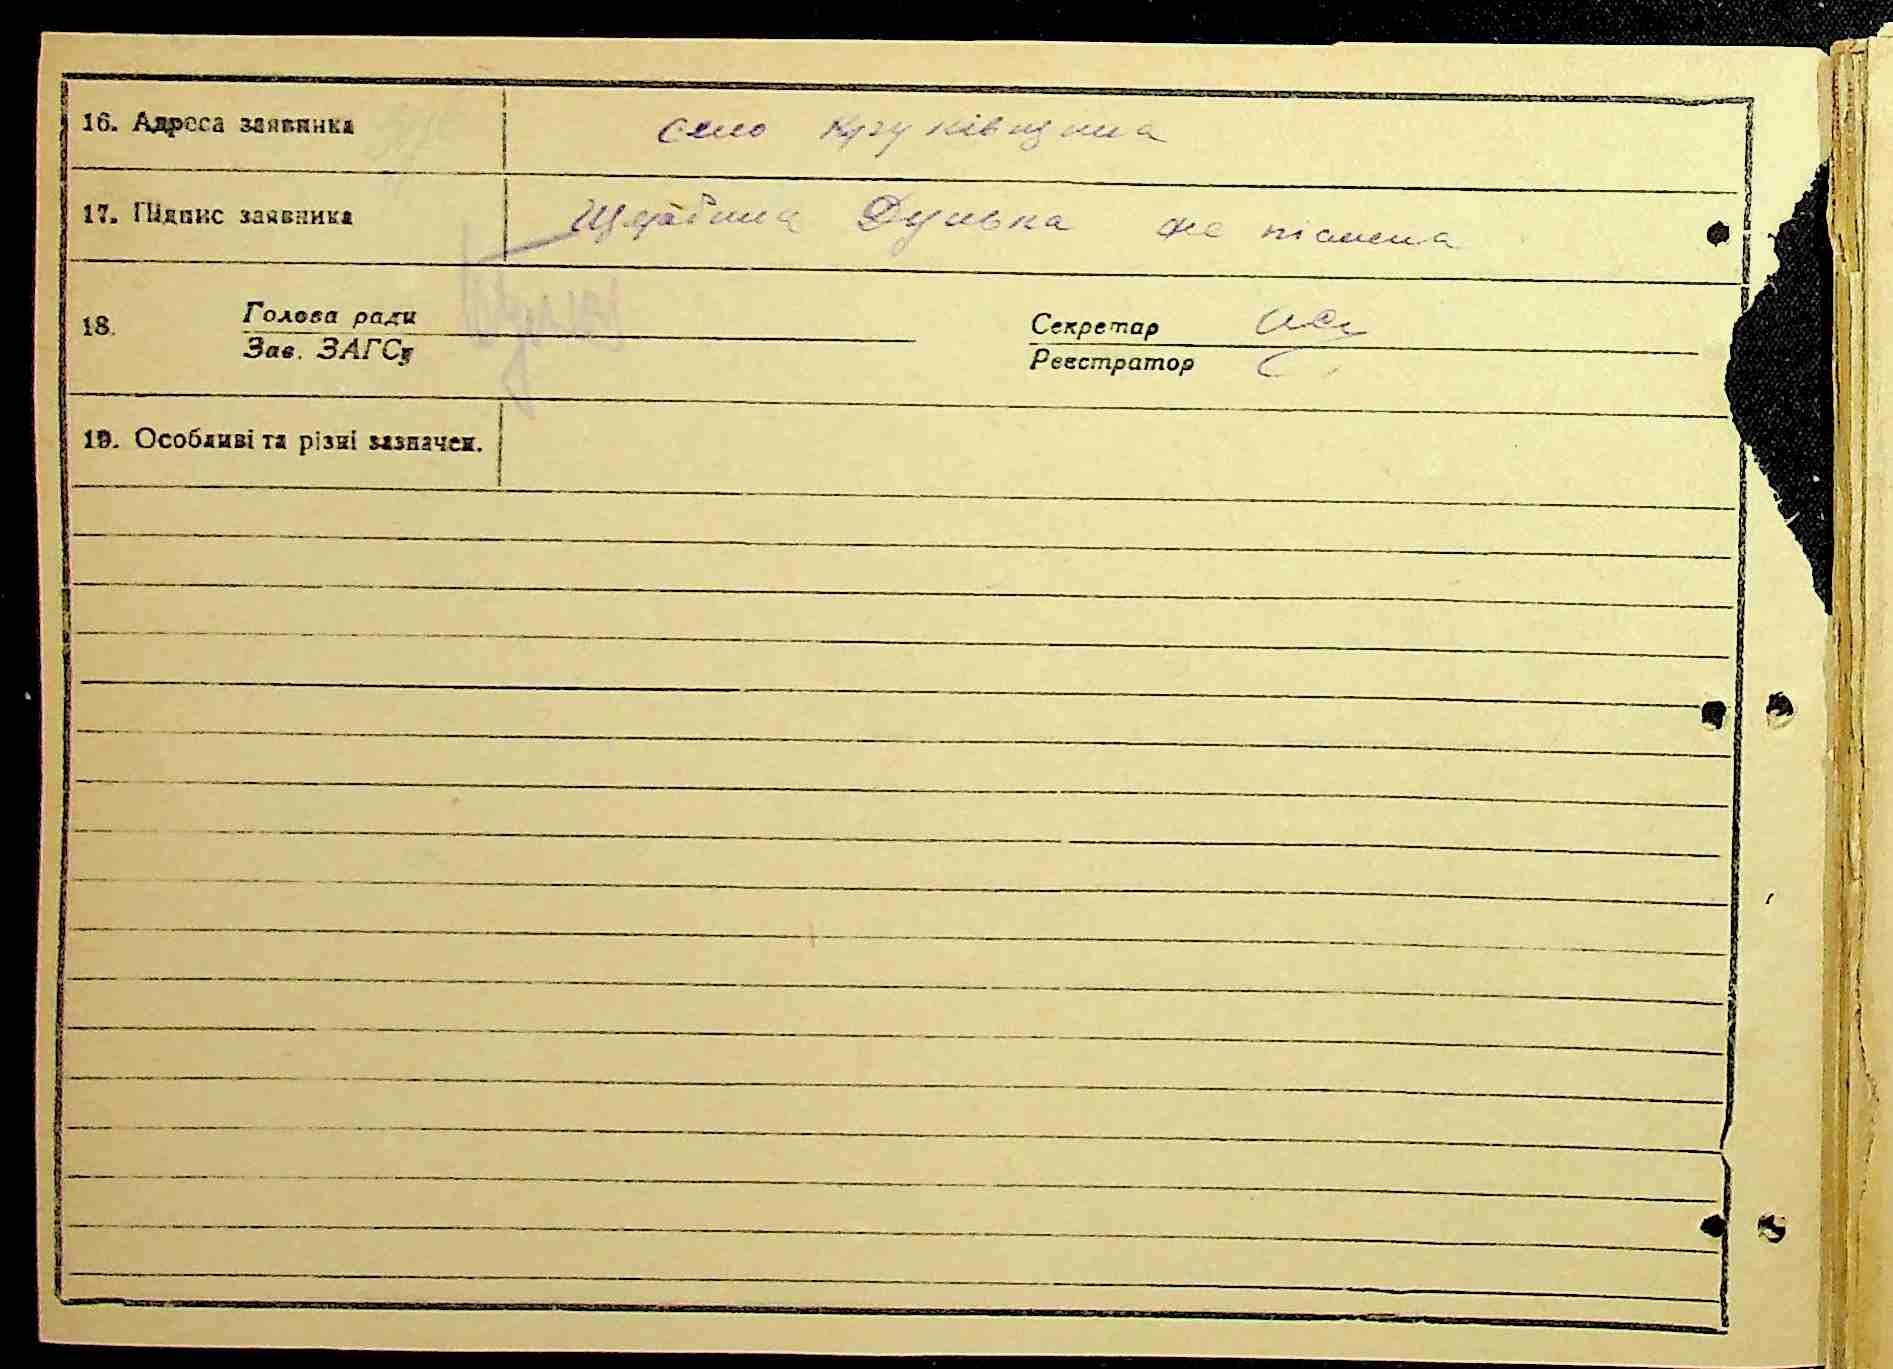 16. Адреса заявника село Круківщина
17. Підпис заявника Щербина Дунька не пісмена
18. Голова ради Секретар
Зав. ЗАГСу Реєстратор
19. Особливі та різні зазначен.